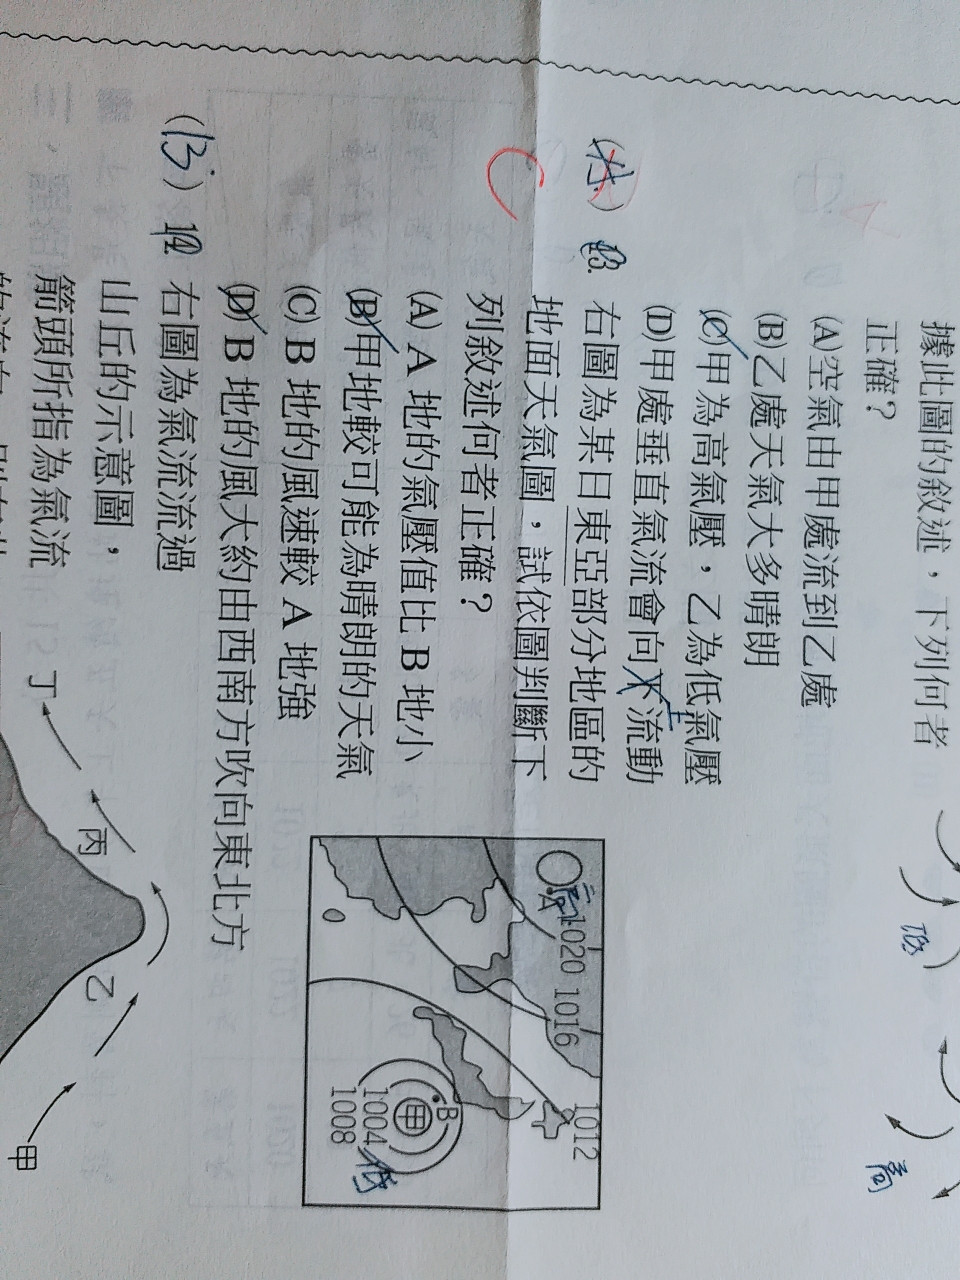 據此圖的敘述，下列何者
正確？
(A)空氣由甲處流到乙處
(B)乙處天氣大多晴朗
(C)甲為高氣壓，乙為低氣壓
(D)甲處垂直氣流會向下流動
上
低
高
右圖為某日東亞部分地區的
地面天氣圖，試依圖判斷下
列敘述何者正確？
(A) A 地的氣壓值比 B 地小
(B)甲地較可能為晴朗的天氣
(C) B 地的風速較 A 地強
(D) B 地的風大約由西南方吹向東北方
C
高
A
1020 1016
1012
B
甲
1004
1008
低
(B) 12.
右圖為氣流流過
山丘的示意圖，
箭頭所指為氣流
丁
丙
乙
甲